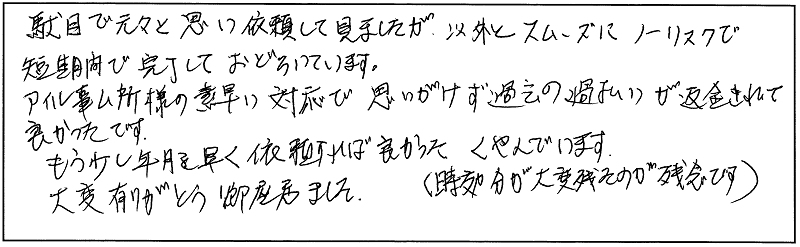 駄目で元々と思い依頼して見ましたが以外とスムーズにノーリスクで
短期間で完了しておどろいています。
アイル事ム所様の素早い対応で思いがけず過去の過払いが返金されて
良かったです.
もう少し年月を早く依頼すれば良かった くやんでいます.
大変有りがとう御座居ました. (時効分が大変残念のが残念です)